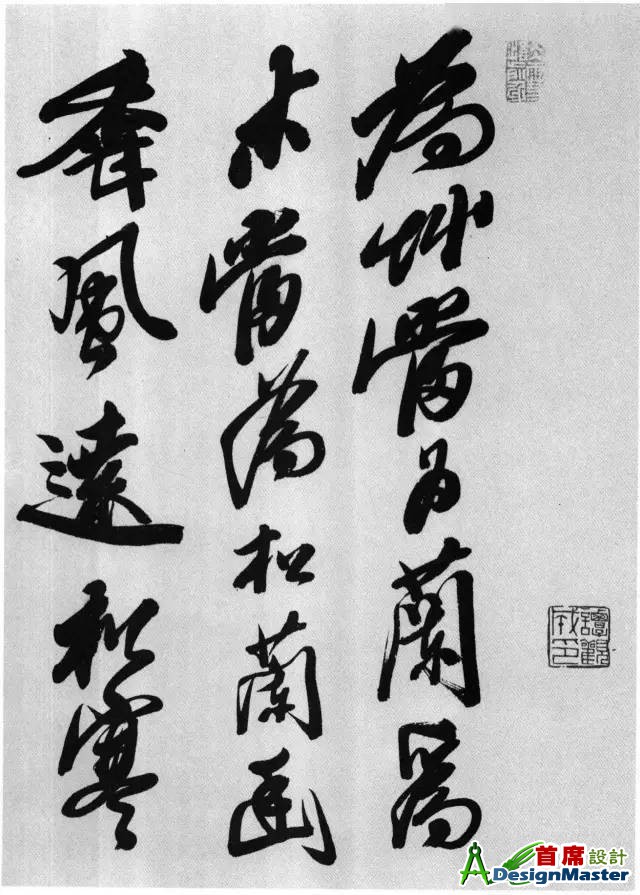 為草當為蘭為
木當為松蘭幽
香風遠松寒
首席設計
ADesignMaster